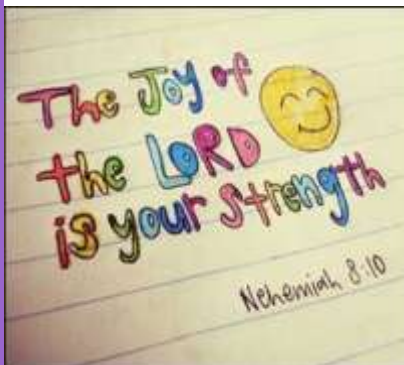 The Joy of
the LORD
is your Strength
Nehemiah 8:10